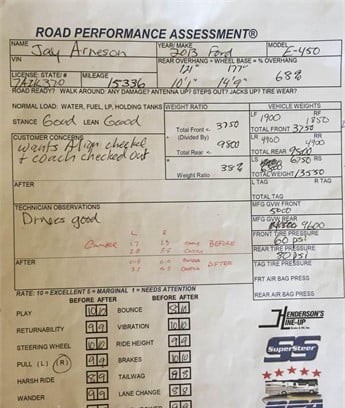 ROAD PERFORMANCE ASSESSMENT®
NAME Jay Arneson YEAR/MAKE 2013 Ford MODEL F-450
VIN REAR OVERHANG ÷ WHEEL BASE = % OVERHANG
121" 177"
LICENSE: STATE/# MILEAGE 15336 10'1" 14'9" 68%
ROAD READY? WALK AROUND: ANY DAMAGE? ANTENNA UP? STEPS OUT? JACKS UP? TIRE WEAR?
NORMAL LOAD: WATER, FUEL, LP, HOLDING TANKS WEIGHT RATIO VEHICLE WEIGHTS
STANCE Good LEAN Good Total Front 3750 LF 1900 RF 1850
(Divided By) TOTAL FRONT 3750
CUSTOMER CONCERNS Total Rear 9800 LR 4900 RR 4900
wants Align checked TOTAL REAR 9800
+ coach checked out Weight Ratio 38% LS 6750 RS
TOTAL WEIGHT 13550
AFTER L TAG R TAG
TECHNICIAN OBSERVATIONS MFG GVW FRONT
Drives good 5600
MFG GVW REAR
9600
L R FRONT TIRE PRESSURE
BEFORE 60 psi
REAR TIRE PRESSURE
80 psi
AFTER AFTER TAG TIRE PRESSURE
FRT AIR BAG PRESS
REAR AIR BAG PRESS
RATE: 10 = EXCELLENT 5 = MARGINAL 1 = NEEDS ATTENTION
BEFORE AFTER BEFORE AFTER
PLAY 10 10 BOUNCE 8 10
RETURNABILITY 9 9 VIBRATION 10 10
STEERING WHEEL 10 10 RIDE HEIGHT 9 9
PULL (L) (R) 9 9 BRAKES 10 10
HARSH RIDE 8 9 TAILWAG 9
WANDER 9 9 LANE CHANGE 8
HENDERSON'S
LINE-UP
SS
SuperSteer